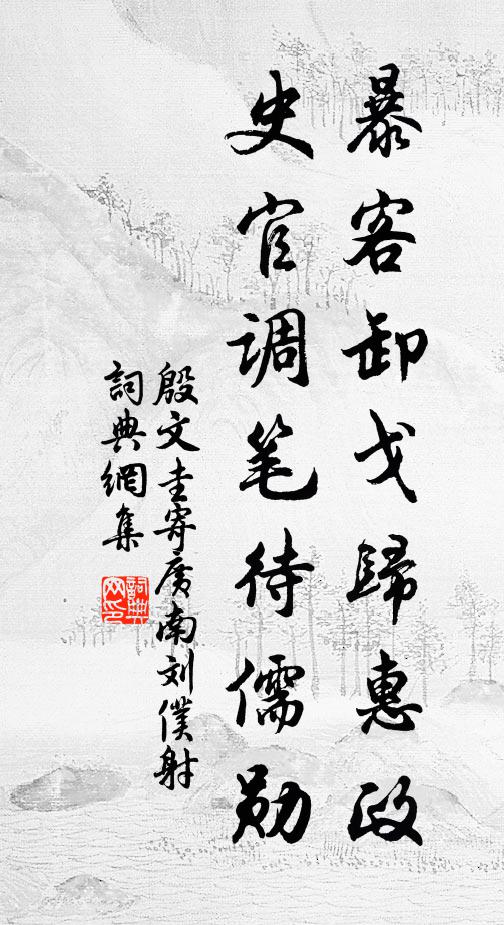 暴客卸戈歸惠政
史官调笔待儒勋
殷文圭寄廣南刘僕射
詞典網集